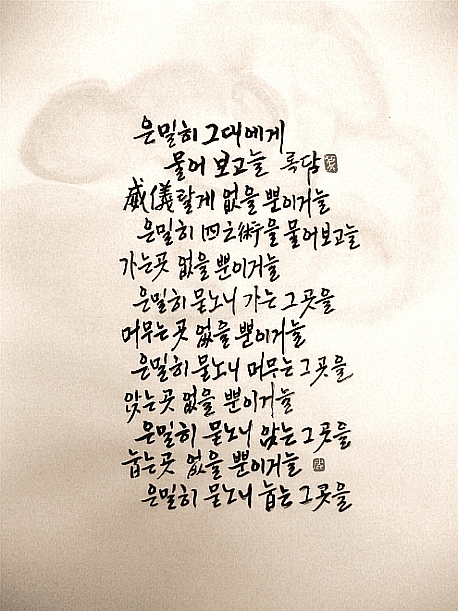 은밀히 그대에게
물어 보고늘 록담
威儀랄게 없을 뿐이거늘
은밀히 四之術을 물어보고늘
가는곳 없을 뿐이거늘
은밀히 묻노니 가는 그곳을
머무는 곳 없을 뿐이거늘
은밀히 묻노니 머무는 그곳을
앉는곳 없을 뿐이거늘
은밀히 묻노니 앉는 그곳을
눕는곳 없을 뿐이거늘
은밀히 묻노니 눕는 그곳을